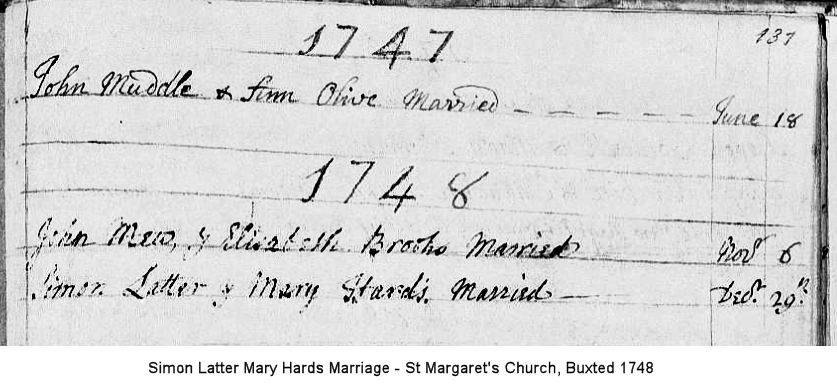 137
1747
John Muddle & Ann Olive Married June 18
1748
John Mew, & Elizabeth Brooks Married Novr 6
Simon Latter & Mary Hards. Married Decr. 29th
Simon Latter Mary Hards Marriage - St Margaret's Church, Buxted 1748